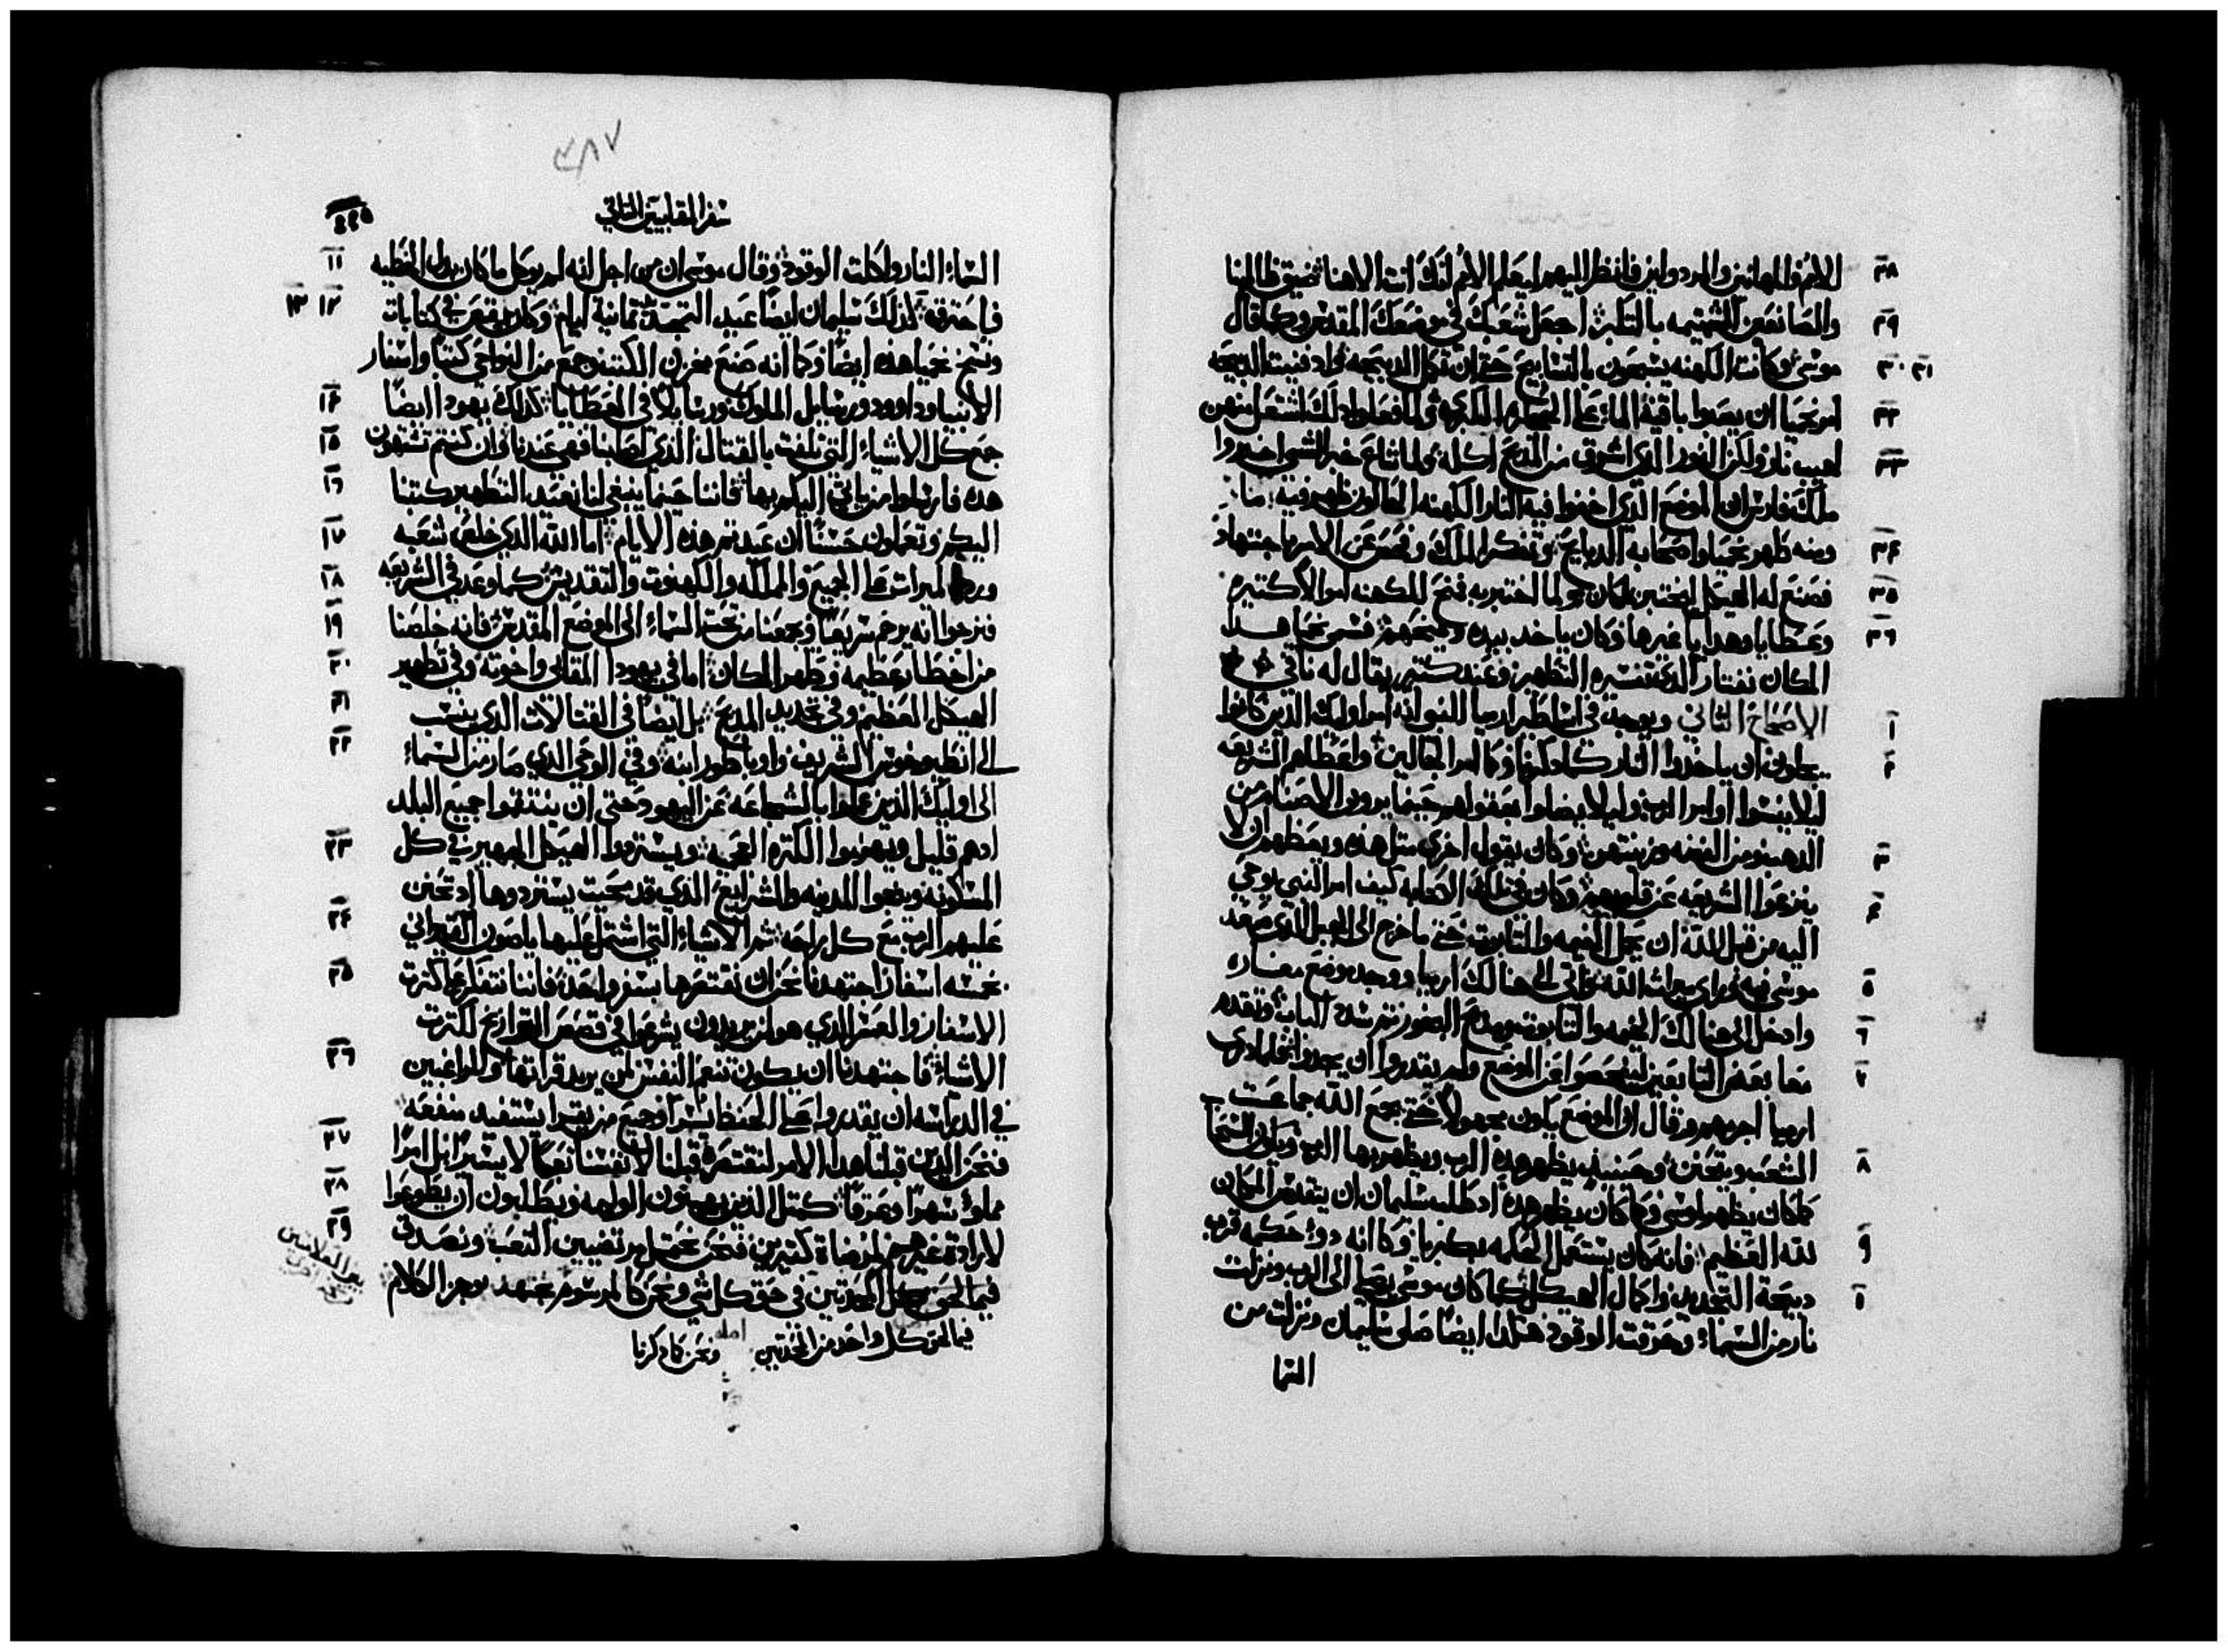 ٢٨ الامم والمهانين والمردولين فانظر اليهم ليعلم الامم انك انت الاهنا ضيق ظالمينا
٢٩ والصانعين الشتيمه بالتكبر اجعل شعبك في موضعك المقدس وكما قال
٣٠ ٣١ موسى وكانت الكهنه يسبحون بالتسابيح حتى ان تكمل الدبيحه واد فنيت الدبيحه
٣٢ امر نحميا ان يصبوا باقية الماء على الحجاره الكبيره ولما فعلوا دلك اشتعل منهن
٣٣ لهيب نار ولكن النور الدي اشرق من المدبح اكله ولما شاع خبر الشي اخبروا
ملك فارس ان الموضع الذي اخفوا فيه النار الكهنه الجالون ظهر فيه ما
٣٤ ومنه طهر نحميا واصحابه الدبايح وتفكر الملك وفحص عن الامر باجتهاد
٣٥ فصنع له الهيكل ليختبر ما كان ولما اختبر به فمنح للكهنه اموالا كثيره
٣٦ وعطايا وهدايا غيرها وكان ياخد بيده ويمنحهم فسمى نحميا هدا
المكان نفتار الدي تفسيره التطهير وعند كتيرين يقال له نافي
١ الاصحاح الثاني ويوجد في اساطير ارميا النبي انه امر اوليك الذين كانوا
٢ يجلون ان ياخدوا النار كما دكرنا وكما امر الجالين واعطاهم الشريعه
ليلا ينسوا اوامر الرب وليلا يضلوا بعقولهم حينما يرون الاصنام من
٣ الدهب ومن الفضه وزينتهن وكان يقول اخرى مثل هده ويعظهم ان لا
٤ ينزعوا الشريعه عن قلوبهم وكان في تلك الكتابه كيف امر النبي بوحي
اليه من قبل الله ان يحمل الخيمه والتابوت حتى ما خرج الى الجبل الذي صعد
٥ موسى فيه وراى ميراث الله واتى الى هنالك ارميا ووجد موضع مغاره
٦ وادخل الى هنالك الخيمه والتابوت ومدبح البخور ثم سد الباب وتقدم
٧ معا بعض التابعين ليفحصوا عن الموضع ولم يقدروا ان يجدوا فلما درى
ارميا اجرهم وقال ان الموضع يكون مجهولا حتى يجمع الله جماعت
٨ الشعب ويتحنن وحينيد يظهر هده الرب ويظهر بها الرب ويكون السحاب
كما كان يظهر لموسى وكما كان يظهر هده اد طلب سليمان ان يتقدس المكان
٩ لله العظيم فانه كان يستعمل الحكمه بكبريا وكما انه دو حكمه قرب
١٠ دبيحة التجديد واكمال الهيكل كما كان موسى يصلي الى الرب ونزلت
نار من السماء وحرقت الوقود هكدا ايضا صلى سليمان ونزلت من
السما
٤٨٧
سفر المقابيين الثاني
١١ السماء النار واكلت الوقود وقال موسى ان من اجل انه لم يوكل ما كان بدل الخطيه
١٢ ١٣ فاحترق كذلك سليمان ايضا عيد التجديد ثمانية ايام وكان يقص في كتابات
ونسخ نحميا هده ايضا وكما انه صنع مخزن الكتب وجمع من النواحي كتبا واسفار
١٤ الانبيا وداوود ورسايل الملوك ورسايلا في العطايا كذلك يهودا ايضا
١٥ جمع كل الاشياء التي تلفت بالقتال الذي اصابنا فهي عندنا وان كنتم تشتهون
١٦ هده فارسلوا من ياتي اليكم بها فاننا حينما ينبغي لنا نعيد التطهير كتبنا
١٧ اليكم وتعملون حسنا ان عيدتم هذه الايام اما الله الدي خلص شعبه
١٨ ورد الميراث على الجميع والملك والكهنوت والتقديس كما وعد في الشريعه
١٩ فنرجوا انه يرحم سريعا ويجمعنا من تحت السماء الى الموضع المقدس فانه خلصنا
٢٠ من اخطار عظيمه وطهر المكان اما في يهودا المقابي واخوته وفي تطهير
٢١ الهيكل العظيم وفي تجديد المدبح بل ايضا في القتالات الدي ينسب
٢٢ الى انطيوخوس الشريف واوباطور ابنه وفي الوحي الذي صار من السماء
الى اوليك الذين عملوا بالشجاعه عن اليهود حتى ان ينتقموا جميع البلد
٢٣ ادهم قليل ويهزموا الكثره العجميه ويستردوا الهيكل الشهير في كل
المسكونه وينجوا المدينه والشرايع الذي قد محيت يستردوها اد تحنن
٢٤ عليهم الرب مع كل راحه ثم الاشياء التي اشتمل عليها ياصون القيرواني
٢٥ بخمسه اسفار اجتهدنا نحن ان نقتصرها بسفر واحد فاننا نتفكر على كثرت
الاسفار والعسر الدي هو لمن يريدون يشرعوا في قصص التواريخ لكثرت
٢٦ الاشياء فاجتهدنا ان يكون تنعم النفس لمن يريد قراتها وللراغبين
في الدراسه ان يقدروا على الحفظ يسيرا وجميع من يقرا يستفيد منفعه
٢٧ فنحن الدين قبلنا هدا الامر لنقتصره قبلنا لانفسنا تعبا لا يسيرا بل امرا
٢٨ مملوء سهرا وعرقا كمثل الذين يهيون الوليمه ويطلبون ان يطوعوا
٢٩ لارادة غيرهم لمرضاة كثيرين فنحن نحتمل مرتضيين التعب ونصدق
فيما لحق كل المحدثين في حق كل شي ونحن كالمرسوم نجتهد بوجز الكلام
فيما لحق كل واحد من المحدثين ونحن كما دكرنا